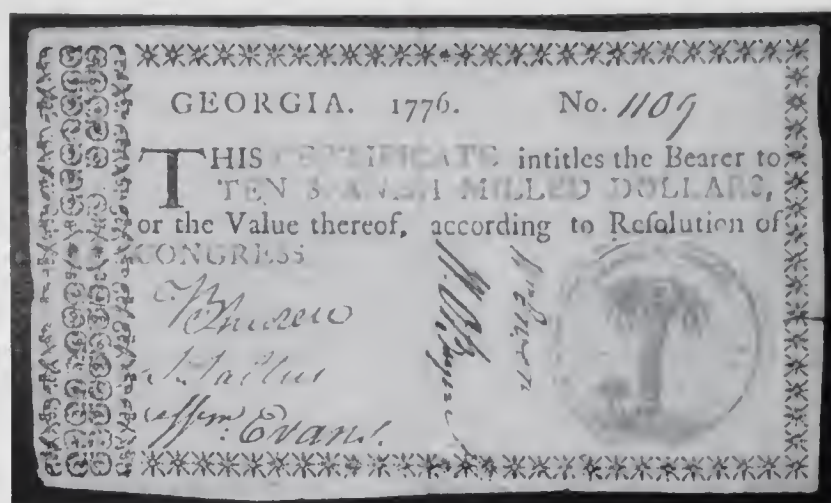 GEORGIA. 1776. No. 1109
THIS CERTIFICATE intitles the Bearer to
TEN SPANISH MILLED DOLLARS,
or the Value thereof, according to Reſolution of
CONGRESS
Wm: Evans.